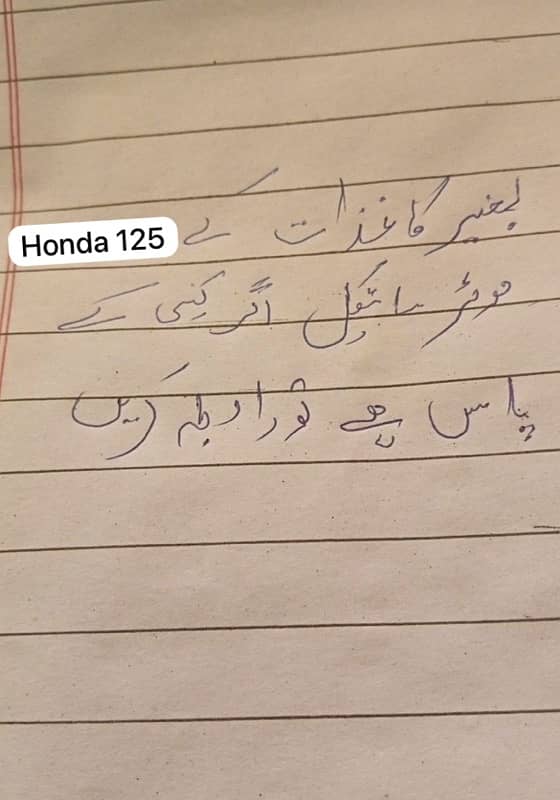 بغیر کاغذات کے Honda 125
موٹر سائیکل اگر کسی کے
پاس ہے تو رابطہ کریں